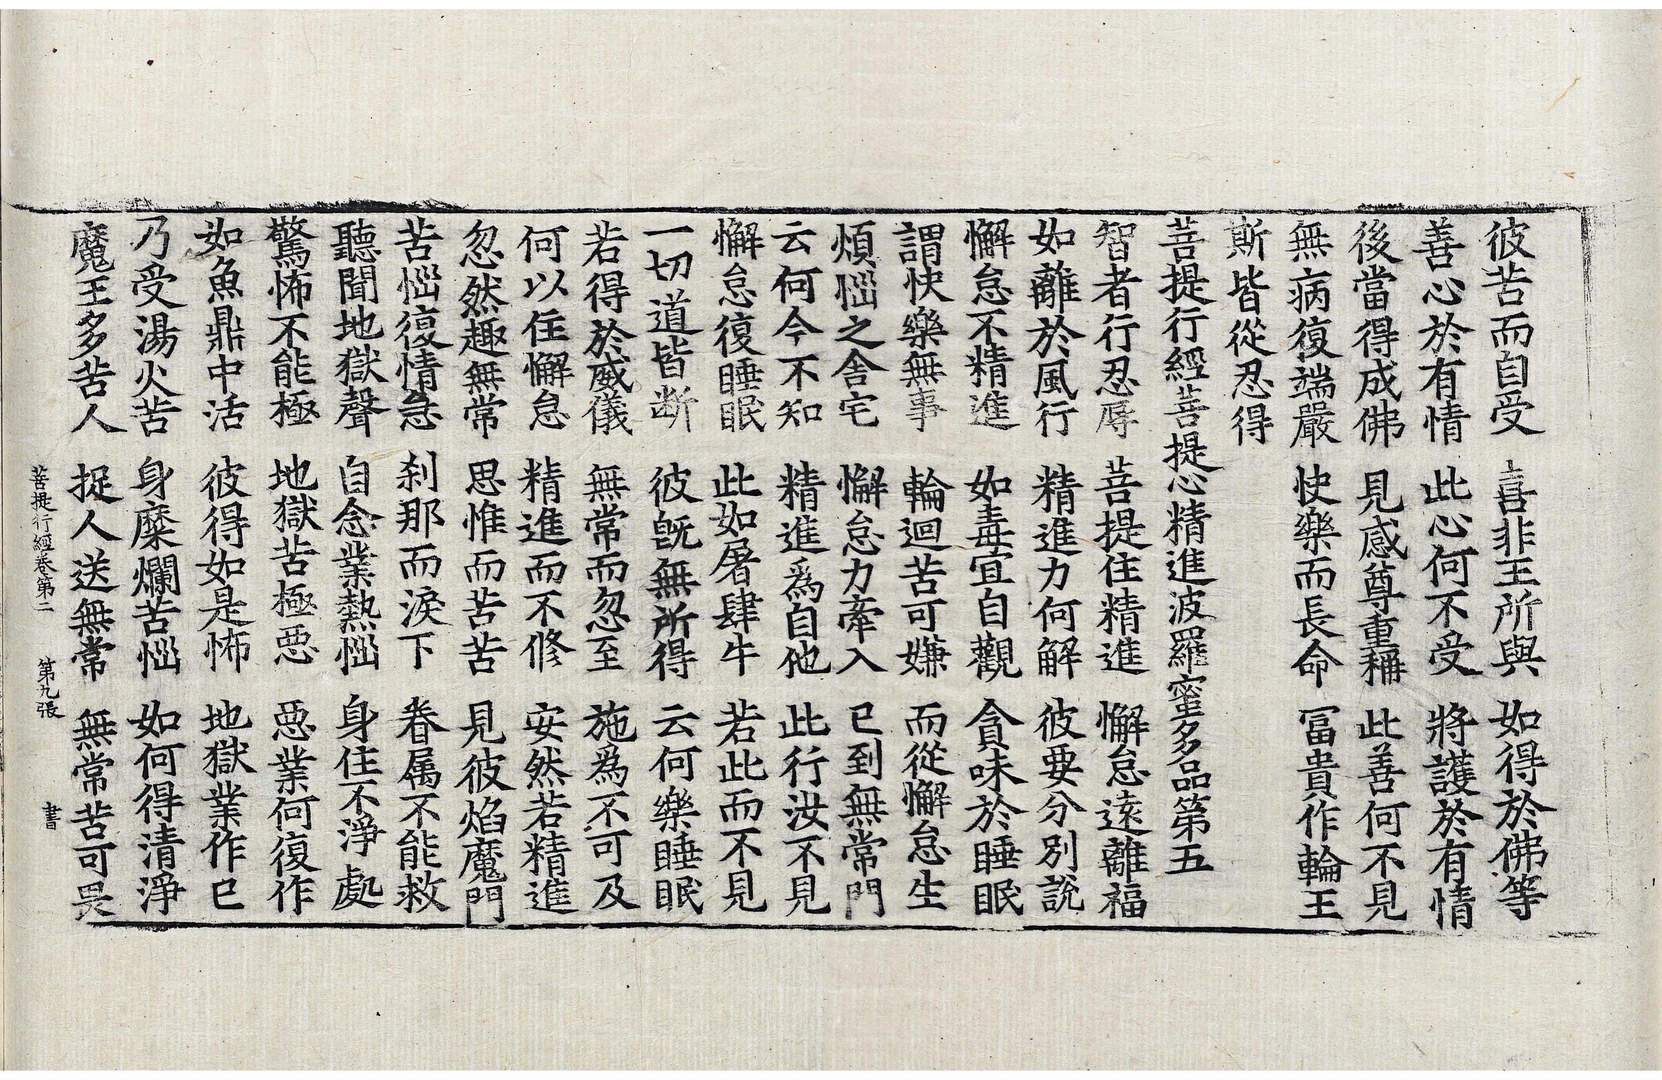 彼苦而自受　喜非王所與　如得於佛等
善心於有情　此心何不受　將護於有情
後當得成佛　見感尊重稱　此善何不見
無病復端嚴　快樂而長命　冨貴作輪王
斯皆從忍得
菩提行經菩提心精進波羅蜜多品第五
智者行忍辱　菩提住精進　懈怠遠離福
如離於風行　精進力何解　彼要分別說
懈怠不精進　如毒宜自觀　貪味於睡眠
謂快樂無事　輪迴苦可嫌　而從懈怠生
煩惱之舍宅　懈怠力牽入　已到無常門
云何今不知　精進爲自他　此行汝不見
懈怠復睡眠　此如屠肆牛　若此而不見
一切道皆断　彼旣無所得　云何樂睡眠
若得於威儀　無常而忽至　施爲不可及
何以住懈怠　精進而不修　安然若精進
忽然趣無常　思惟而苦苦　見彼焰魔門
苦惱復情急　刹那而淚下　眷属不能救
聽聞地獄聲　自念業熱惱　身住不淨處
驚怖不能極　地獄苦極惡　惡業何復作
如魚鼎中活　彼得如是怖　地獄業作已
乃受湯火苦　身糜爛苦惱　如何得清淨
魔王多苦人　捉人送無常　無常苦可畏
菩提行經卷第二　第九張　書